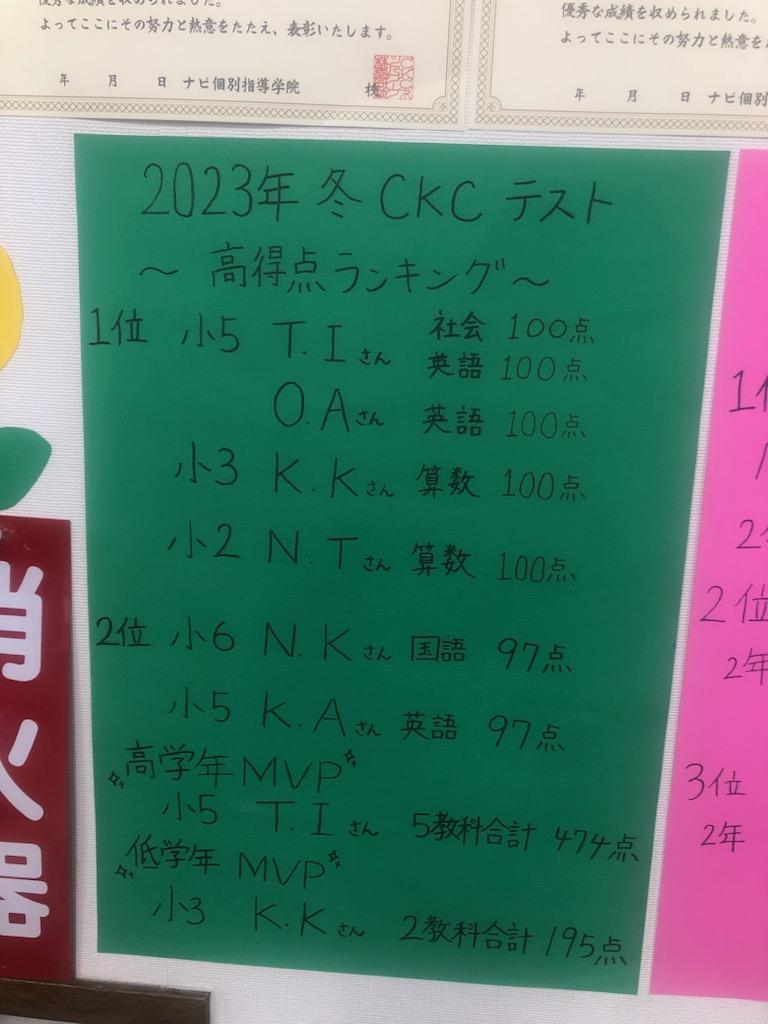 優秀な成績を収められました。
よってここにその努力と熱意をたたえ、表彰いたします。
年 月 日 ナビ個別指導学院 校
優秀な成績を収められました。
よってここにその努力と熱意を
年 月 日 ナビ個別
2023年 冬 CKC テスト
〜 高得点ランキング 〜
1位 小5 T.Iさん 社会 100点
英語 100点
O.Aさん 英語 100点
小3 K.Kさん 算数 100点
小2 N.Tさん 算数 100点
2位 小6 N.Kさん 国語 97点
小5 K.Aさん 英語 97点
高学年 MVP
小5 T.Iさん 5教科合計 474点
低学年 MVP
小3 K.Kさん 2教科合計 195点
消火器
1位
2年
2位
2年
3位
2年